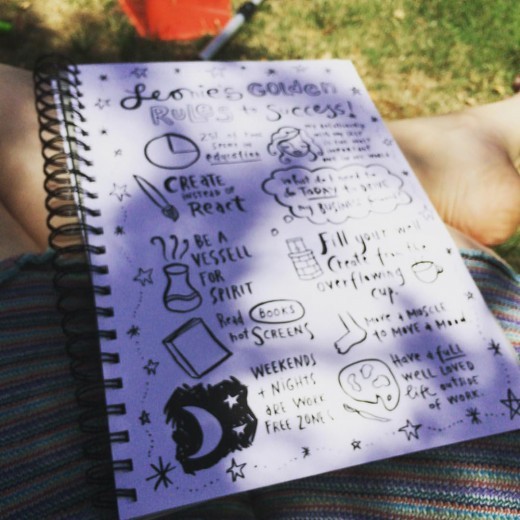 Leonie's GOLDEN
RULES to Success!
25% of time
spent in
education
my relationship
with my self
is the most
important
one in my world
CREATE
INSTEAD OF
React
What do I need to
do TODAY to
my BUSINESS
BE A
VESSELL
FOR
SPIRIT
Fill your well
Create from the
overflowing
cup.
Read BOOKS
not SCREENS
MOVE a MUSCLE
TO MOVE a Mood
WEEKENDS
+ NIGHTS
ARE WORK
FREE ZONES
Have a full
WELL LOVED
life OUTSIDE
OF WORK.